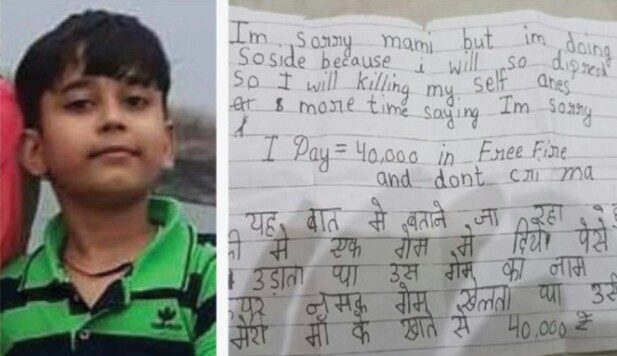 Im sorry mami but im doing
Soside because i will so dipresd
So I will killing my self
more time saying Im sorry
I Pay = 40,000 in Free Fire
and dont cri ma
यह बात मे बताने जा रहा
मे एक गेम मे दिये पैसे
उड़ाता था उस गेम का नाम
गेम खेलता था उसी
मेरी माँ के खाते से 40,000 ₹